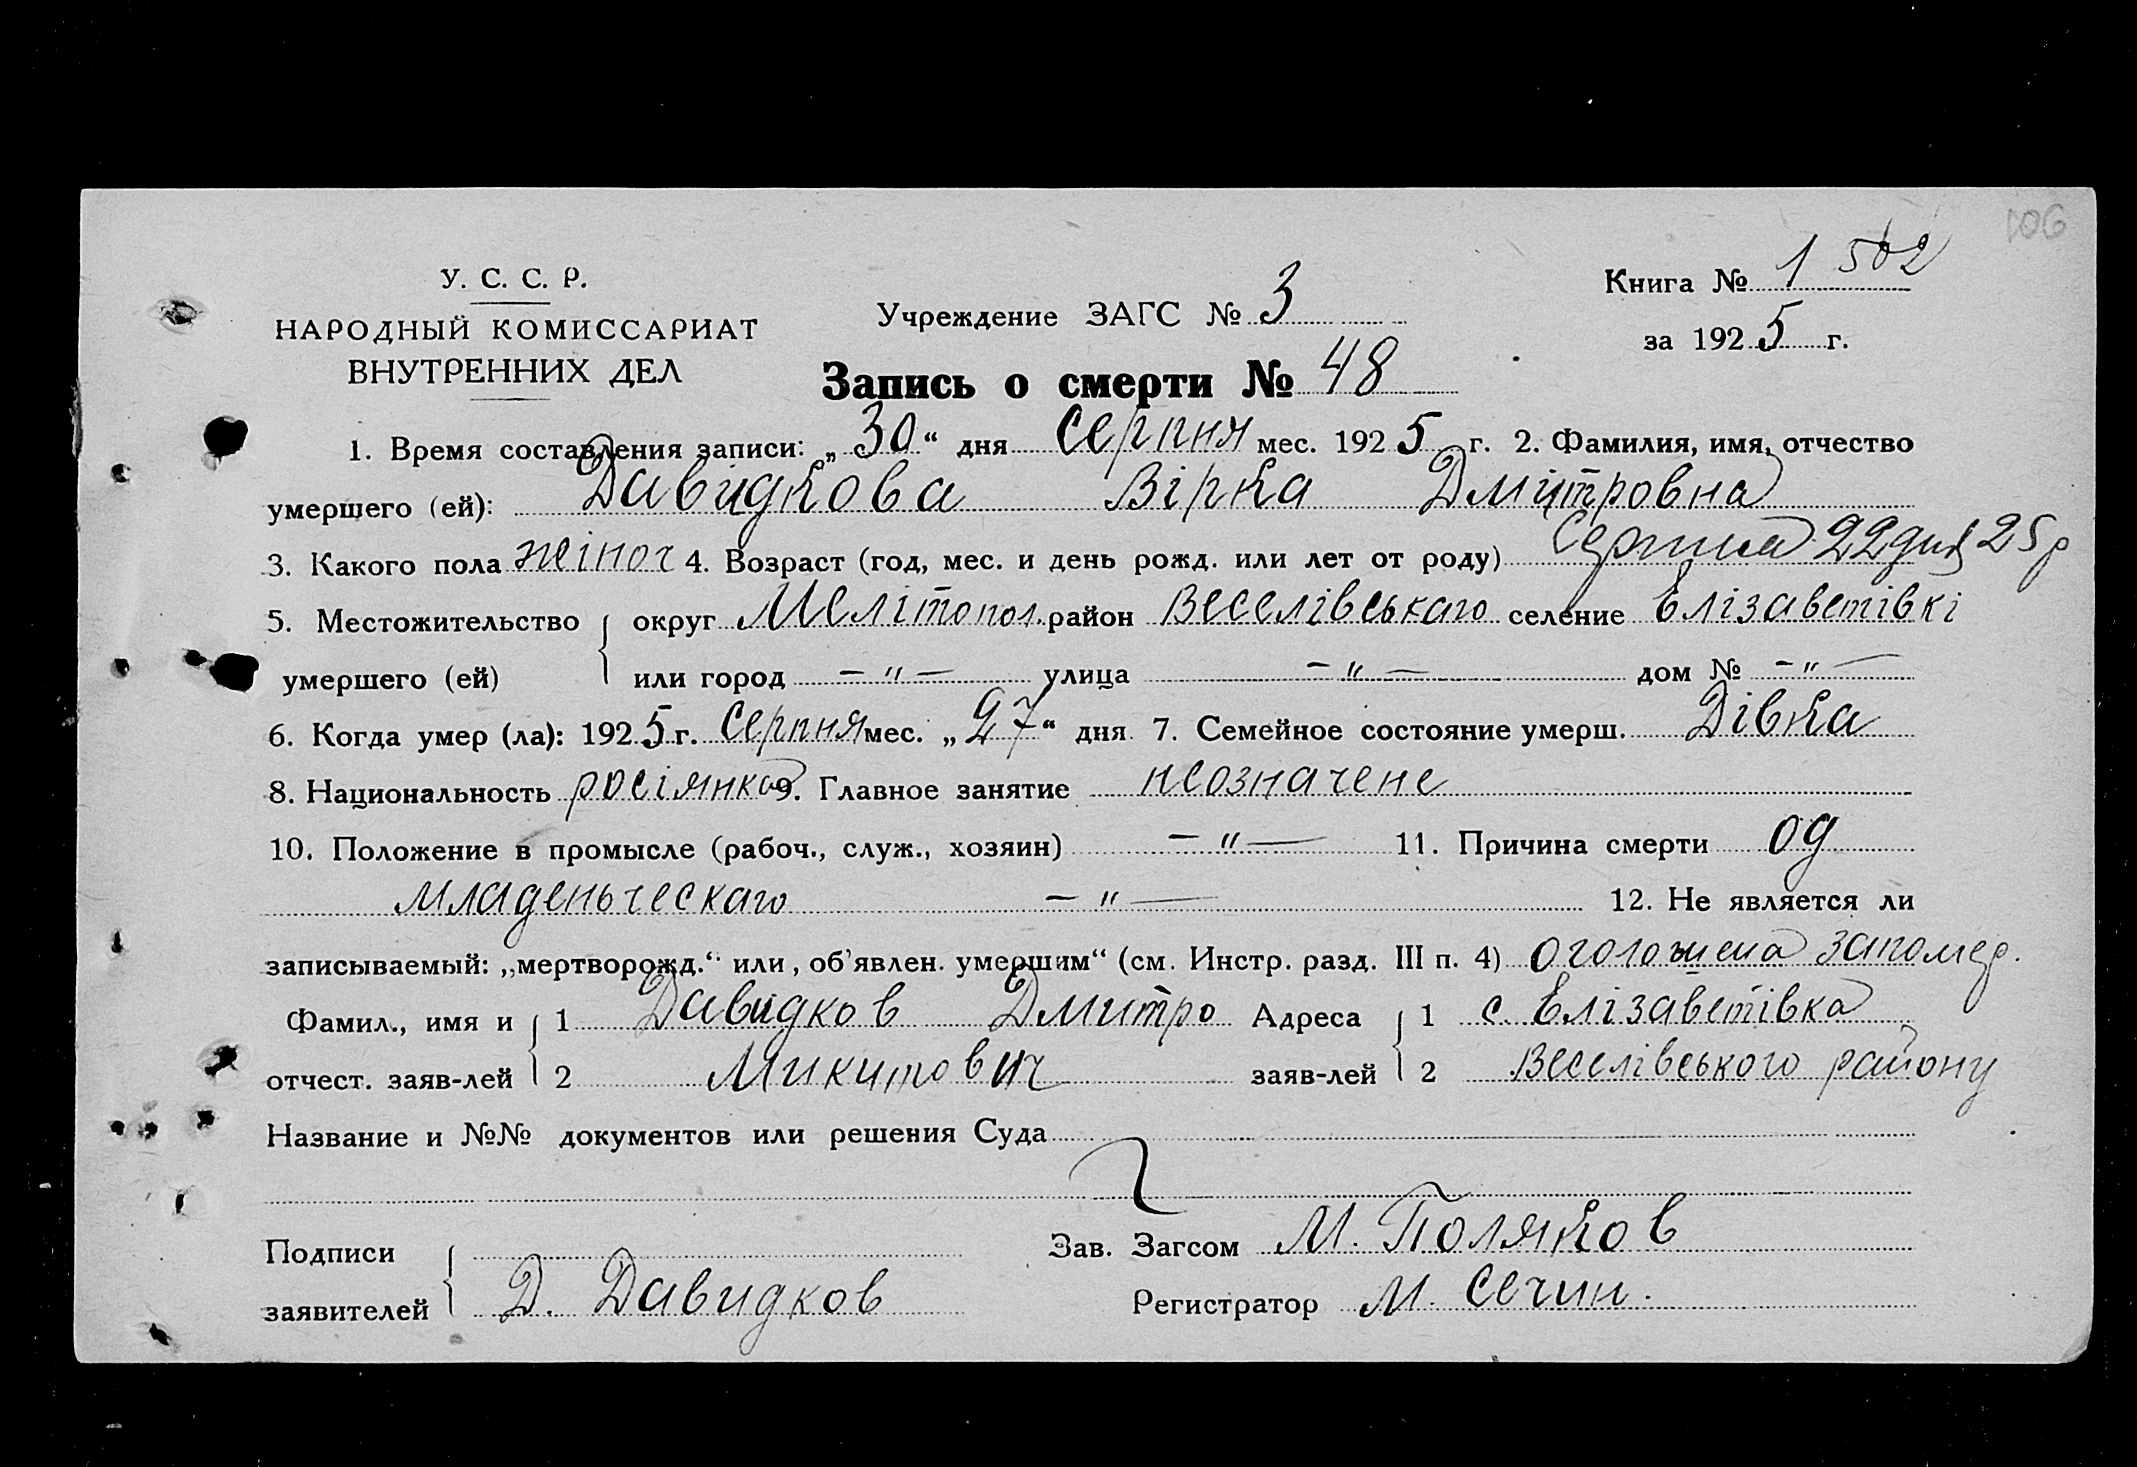 106
У. С. С. Р.
НАРОДНЫЙ КОМИССАРИАТ
ВНУТРЕННИХ ДЕЛ
Учреждение ЗАГС № 3
Книга № 1 502
за 1925 г.
Запись о смерти № 48
1. Время составления записи: „30“ дня Серпня мес. 1925 г. 2. Фамилия, имя, отчество
умершего (ей): Давидкова Вірка Дмитровна
3. Какого пола жіноч 4. Возраст (год, мес. и день рожд. или лет от роду) Серпня 22 дня 25 р
5. Местожительство округ Мелітопол. район Веселівськаго селение Елізаветівкі
умершего (ей) или город — „ — улица — „ — дом № — „ —
6. Когда умер (ла): 1925 г. Серпня мес. „27“ дня 7. Семейное состояние умерш. Дівка
8. Национальность росіянка 9. Главное занятие неозначене
10. Положение в промысле (рабоч., служ., хозяин) — „ — 11. Причина смерти од
младеньческаго — „ — 12. Не является ли
записываемый: „мертворожд.“ или „об'явлен. умершим“ (см. Инстр. разд. III п. 4) оголошена запомер.
Фамил., имя и 1 Давидков Дмитро Адреса 1 с. Елізаветівка
отчест. заяв-лей 2 Микитович заяв-лей 2 Веселівського району
Название и №№ документов или решения Суда
Подписи Зав. Загсом М. Поляков
заявителей Д. Давидков Регистратор М. Сечин.